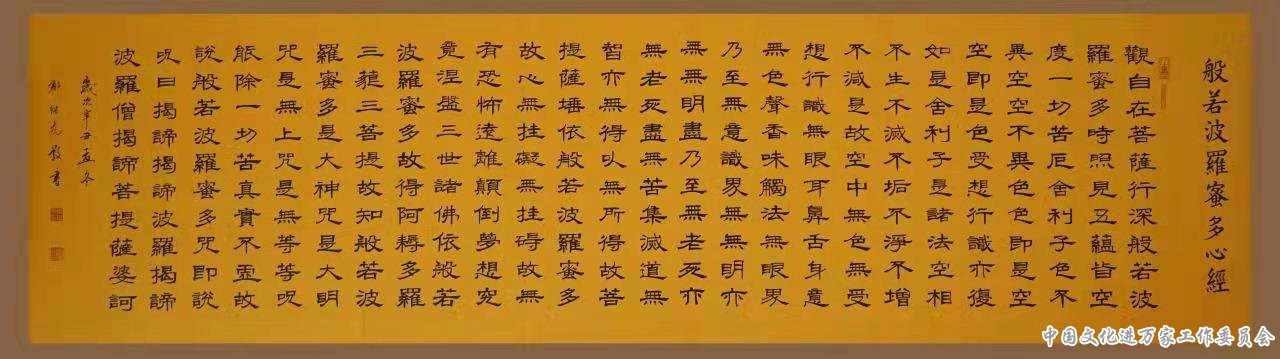 般若波羅蜜多心經
觀自在菩薩行深般若波
羅蜜多時照見五蘊皆空
度一切苦厄舍利子色不
異空空不異色色即是空
空即是色受想行識亦復
如是舍利子是諸法空相
不生不滅不垢不淨不增
不減是故空中無色無受
想行識無眼耳鼻舌身意
無色聲香味觸法無眼界
乃至無意識界無無明亦
無無明盡乃至無老死亦
無老死盡無苦集滅道無
智亦無得以無所得故菩
提薩埵依般若波羅蜜多
故心無挂礙無挂碍故無
有恐怖遠離顛倒夢想究
竟涅盤三世諸佛依般若
波羅蜜多故得阿耨多羅
三藐三菩提故知般若波
羅蜜多是大神咒是大明
咒是無上咒是無等等呪
能除一切苦真實不虛故
說般若波羅蜜多咒即說
呪曰揭諦揭諦波羅揭諦
波羅僧揭諦菩提薩婆訶
歲次辛丑孟冬
書
中国文化进万家工作委员会